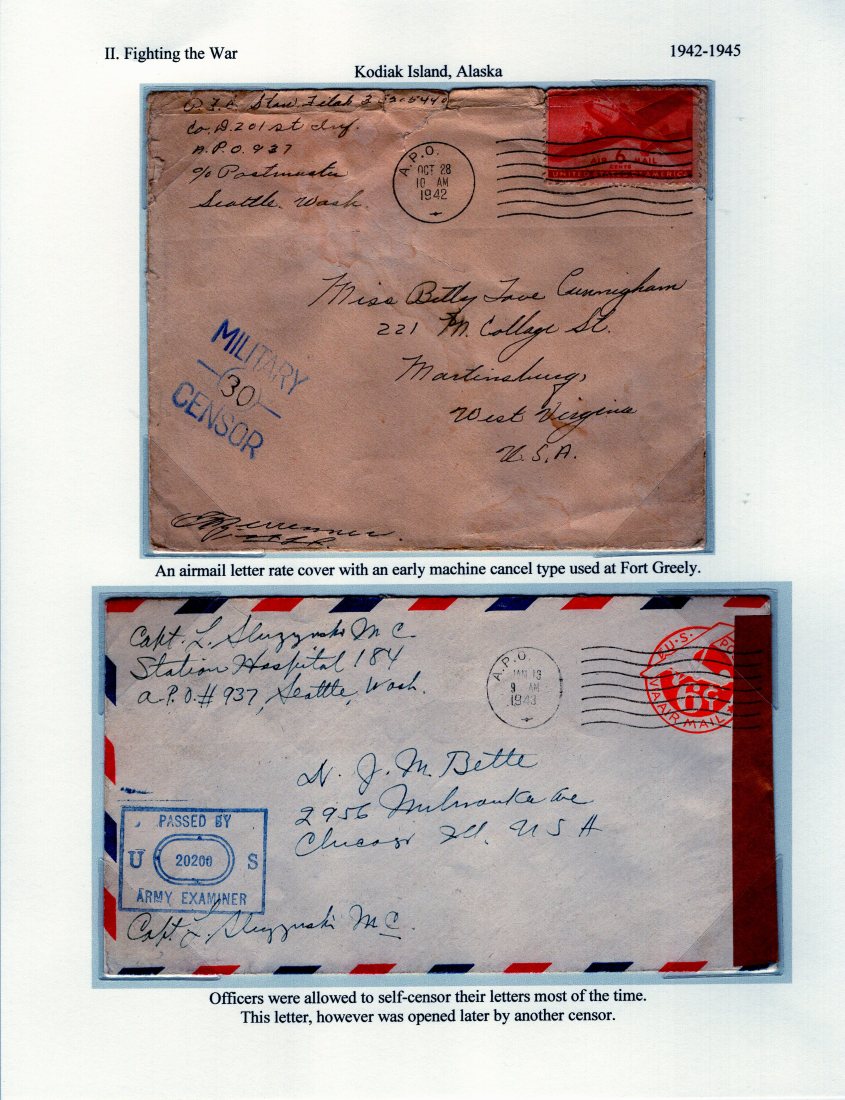 II. Fighting the War
1942-1945
Kodiak Island, Alaska
Co. D. 201st Inf.
A.P.O. 937
c/o Postmaster
Seattle. Wash.
A.P.O.
OCT 28
10 AM
1942
AIR 6 MAIL
CENTS
UNITED STATES OF AMERICA
Miss Betty Love Cunnigham
221 N. Collage St.
Martinsburg,
West Virginia
U.S.A.
MILITARY
30
CENSOR
An airmail letter rate cover with an early machine cancel type used at Fort Greely.
Capt. L. Sluzynski M C
Station Hospital 184
A.P.O.# 937, Seattle, Wash.
A.P.O.
JAN 13
9 AM
1943
U.S.
6¢
VIA AIR MAIL
J. M. Bette
2956 Milwaukee Ave
Chicago Ill. U S A
PASSED BY
U 20200 S
ARMY EXAMINER
Capt. L. Sluzynski M C.
Officers were allowed to self-censor their letters most of the time.
This letter, however was opened later by another censor.